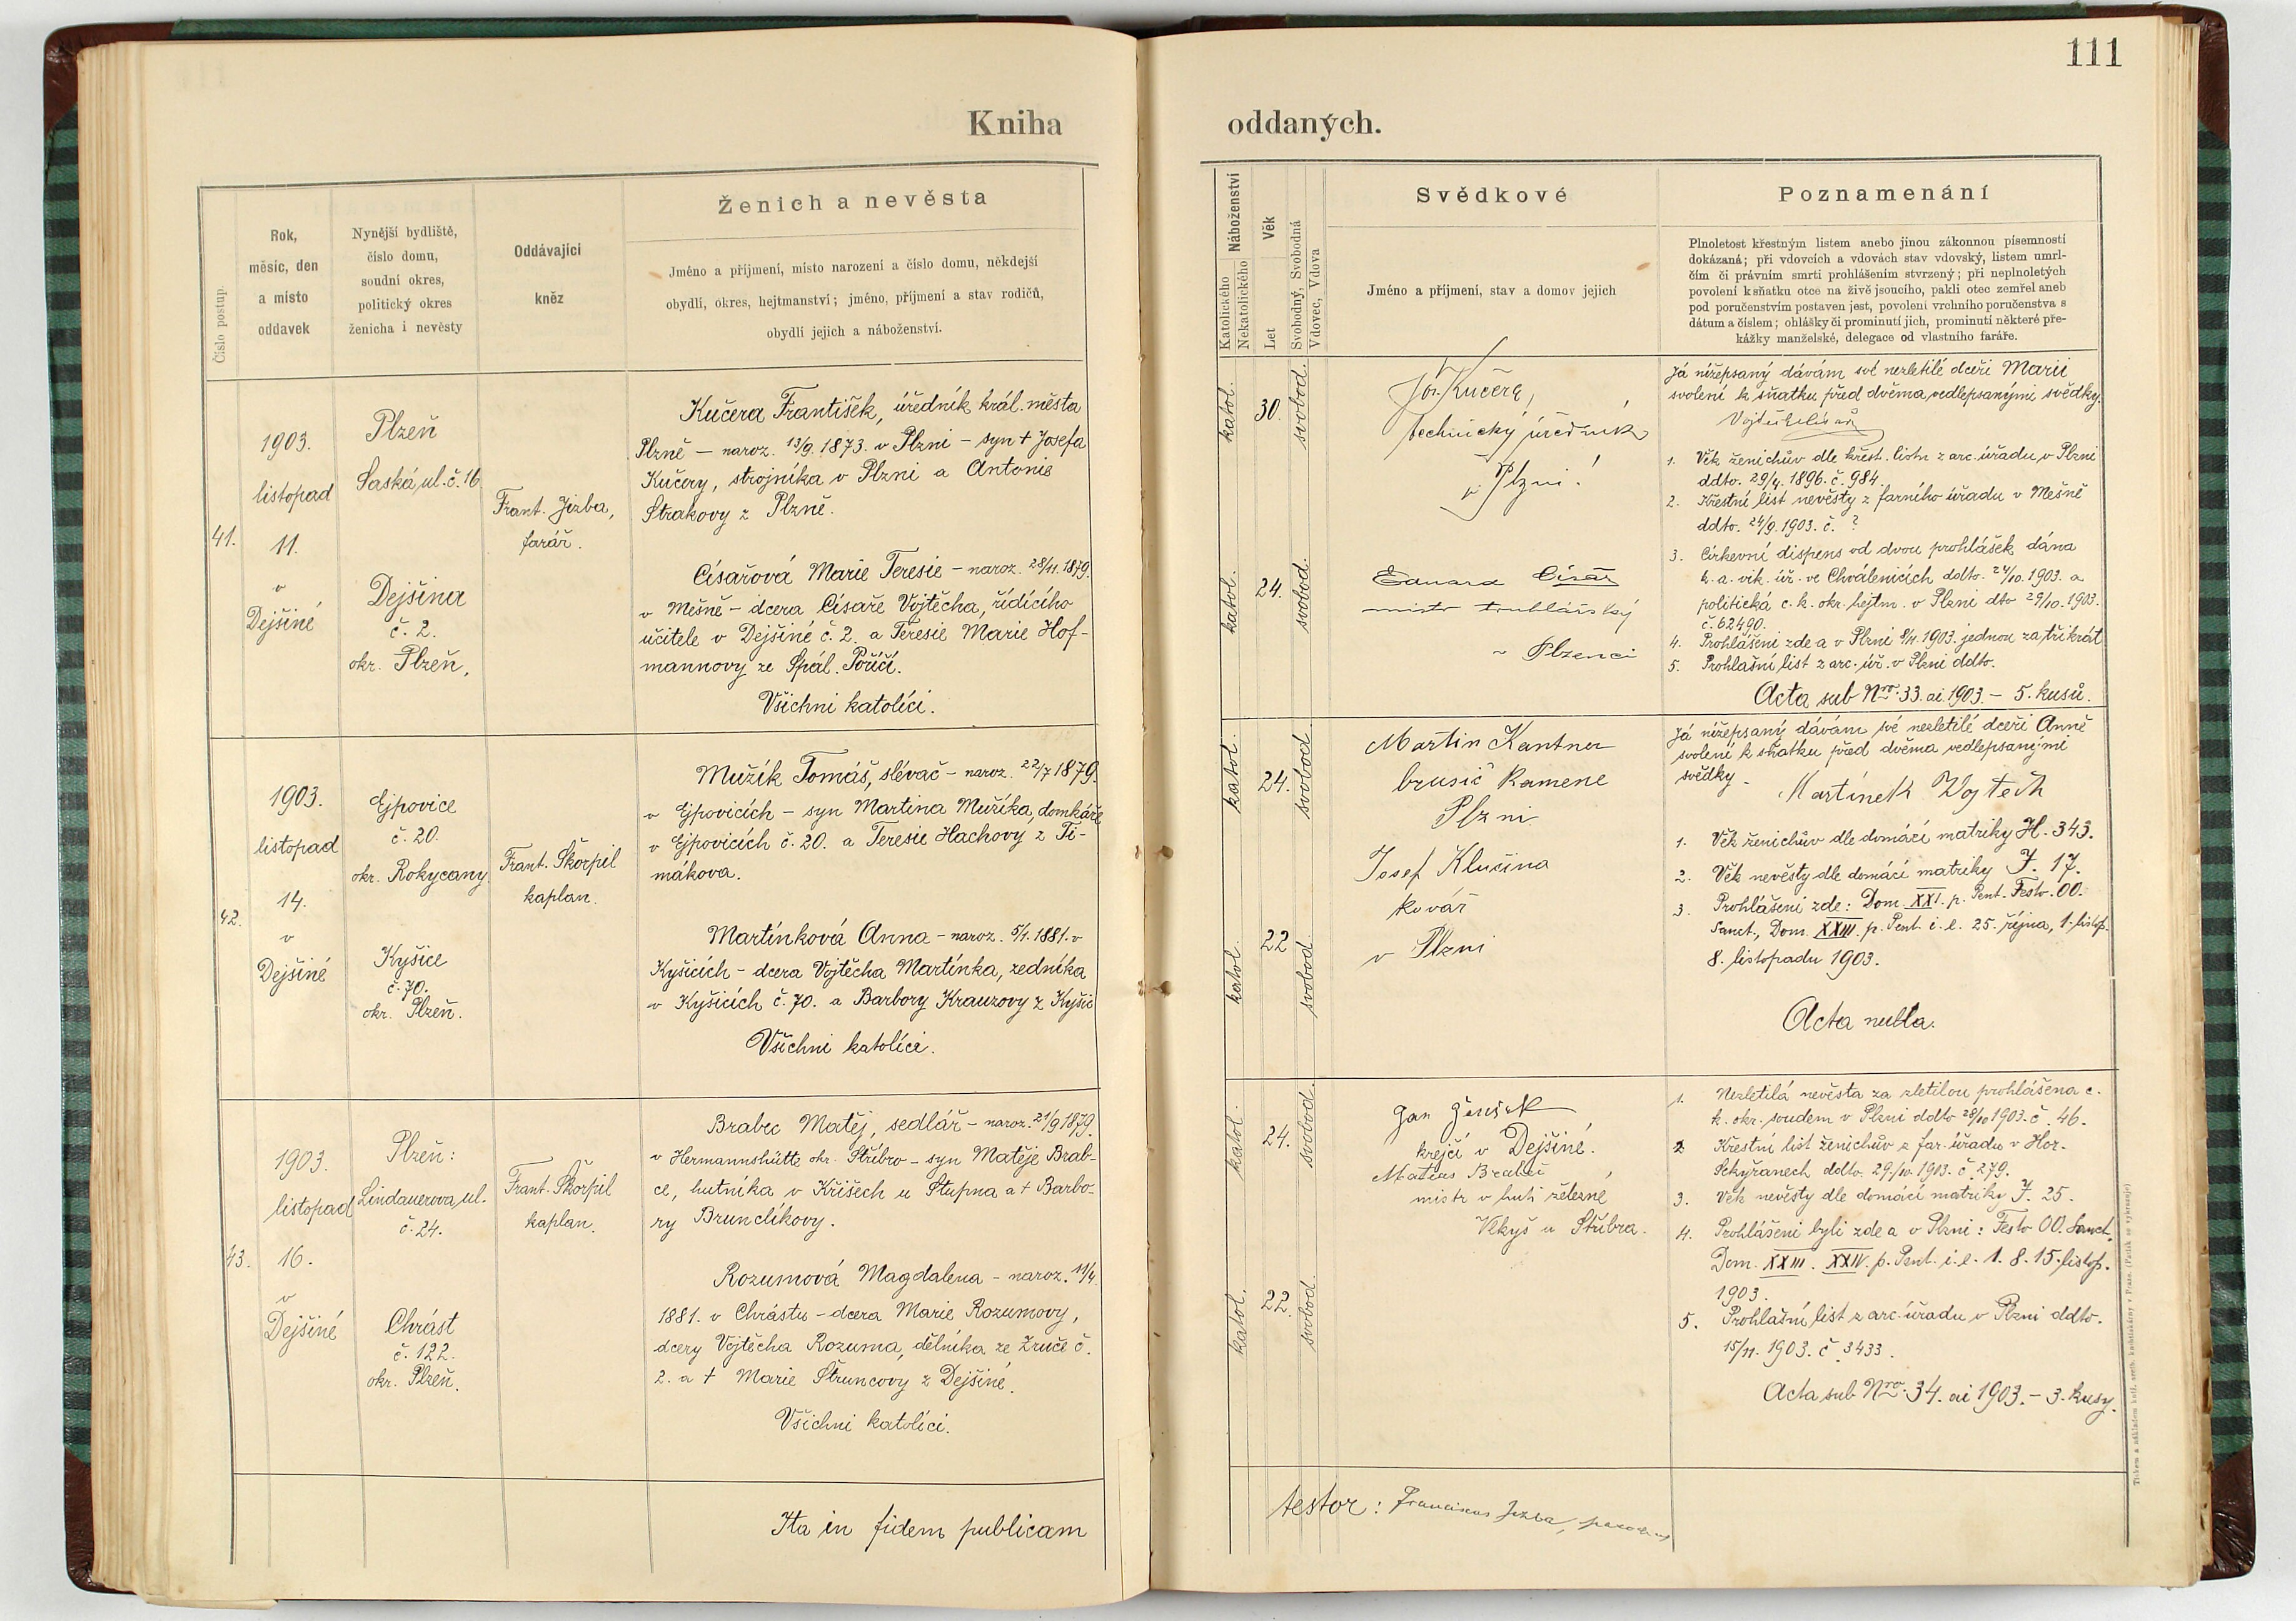 111
Kniha
oddaných.
Číslo postup.
Rok,
měsíc, den
a místo
oddavek
Nynější bydliště,
číslo domu,
soudní okres,
politický okres
ženicha i nevěsty
Oddávající
kněz
Ženich a nevěsta
Jméno a příjmení, místo narození a číslo domu, někdejší
obydlí, okres, hejtmanství; jméno, příjmení a stav rodičů,
obydlí jejich a náboženství.
41.
1903.
listopad
11.
v
Dejšině
Plzeň
Saská ul. č. 16
Dejšina
č. 2.
okr. Plzeň.
Frant. Jizba,
farář.
Kučera František, úředník král. města
Plzně – naroz. 13/9. 1873. v Plzni – syn † Josefa
Kučery, strojníka v Plzni a Antonie
Strakovy z Plzně.
Císařová Marie Teresie – naroz. 28/11. 1879.
v Mešně – dcera Císaře Vojtěcha, řídícího
učitele v Dejšině č. 2. a Teresie Marie Hof-
mannovy ze Spál. Poříčí.
Všichni katolíci.
42.
1903.
listopad
14.
v
Dejšině
Ejpovice
č. 20.
okr. Rokycany
Kyšice
č. 70.
okr. Plzeň.
Frant. Škorpil
kaplan.
Mužík Tomáš, slévač – naroz. 22/7 1879.
v Ejpovicích – syn Martina Mužíka, domkáře
v Ejpovicích č. 20. a Teresie Hachovy z Ti-
mákova.
Martínková Anna – naroz. 5/1. 1881. v
Kyšicích – dcera Vojtěcha Martínka, zedníka
v Kyšicích č. 70. a Barbory Krauzovy z Kyšic
Všichni katolíci.
43.
1903.
listopad
16.
v
Dejšině
Plzeň:
Lindauerova ul.
č. 24.
Chrást
č. 122.
okr. Plzeň.
Frant. Škorpil
kaplan.
Brabec Matěj, sedlář – naroz. 21/9 1879.
v Hermannshütte okr. Stříbro – syn Matěje Brab-
ce, hutníka v Křišech u Stupna a † Barbo-
ry Brunclíkovy.
Rozumová Magdalena – naroz. 11/4.
1881. v Chrástu – dcera Marie Rozumovy,
dcery Vojtěcha Rozuma, dělníka ze Zruče č.
2. a † Marie Štruncovy z Dejšiné.
Všichni katolíci.
Ita in fidem publicam
Náboženství
Katolického
Nekatolického
Věk
Let
Svobodný, Svobodná
Vdovec, Vdova
Svědkové
Jméno a příjmení, stav a domov jejich
Poznamenání
Plnoletost křestným listem anebo jinou zákonnou písemností
dokázaná; při vdovcích a vdovách stav vdovský, listem umrl-
čím či právním smrti prohlášením stvrzený; při neplnoletých
povolení k sňatku otce na živě jsoucího, pakli otec zemřel aneb
pod poručenstvím postaven jest, povolení vrchního poručenstva s
dátum a číslem; ohlášky či prominutí jich, prominutí některé pře-
kážky manželské, delegace od vlastního faráře.
katol.
30.
svobod.
katol.
24.
svobod.
Jos. Kučera,
technický úředník
v Plzni.
Eduard Císař
mistr truhlářský
v Plzenci
Já nížepsaný dávám své nezletilé dceři Marii
svolení k sňatku před dvěma vedlepsanými svědky.
Vojtěch Císař
1. Věk ženichův dle křest. listu z arc. úřadu v Plzni
ddto. 29/4. 1896. č. 984.
2. Křestní list nevěsty z farního úřadu v Mešně
ddto. 24/9. 1903. č. ?
3. Církevní dispens od dvou prohlášek dána
k. a. vik. úř. ve Chválenicích ddto. 24/10. 1903. a
politická c. k. okr. hejtm. v Plzni dto 29/10. 1903.
č. 62490.
4. Prohlášeni zde a v Plzni 8/11. 1903. jednou za třikrát
5. Prohlašní list z arc. úř. v Plzni ddto.
Acta sub Nro. 33. ai 1903 – 5. kusů.
katol.
24.
svobod.
katol.
22
svobod.
Martin Kantner
brusič kamene
Plzni
Josef Klučina
kovář
v Plzni
Já nížepsaný dávám své nezletilé dceři Anně
svolení k sňatku před dvěma vedlepsanými
svědky –
Martínek Vojtěch
1. Věk ženichův dle domácí matriky H. 343.
2. Věk nevěsty dle domácí matriky J. 17.
3. Prohlášeni zde: Dom. XXI. p. Pent. Festo. OO.
Sanct., Dom. XXIII. p. Pent. i. e. 25. října, 1. listop.
8. listopadu 1903.
Acta nulla.
katol.
24.
svobod.
katol.
22.
svobod.
Jan
krejčí v Dejšině.
Mateas Brabec
mistr v huti železné
Vlkyš u Stříbra.
1. Nezletilá nevěsta za zletilou prohlášena c.
k. okr. soudem v Plzni ddto 28/10 1903. č. 46.
2 Křestní list ženichův z far. úřadu v Hor.
Sekyřanech ddto. 29./10. 1903. č. 279.
3. Věk nevěsty dle domácí matriky J. 25.
4. Prohlášeni byli zde a v Plzni: Festo OO. Sanct.
Dom. XXIII. XXIV. p. Pent. i. e. 1. 8. 15. listop.
1903.
5. Prohlašní list z arc. úřadu v Plzni ddto.
15/11. 1903. č. 3433.
Acta sub Nro. 34. ai 1903. – 3. kusy.
testor: Franciscus Jizba, parochus